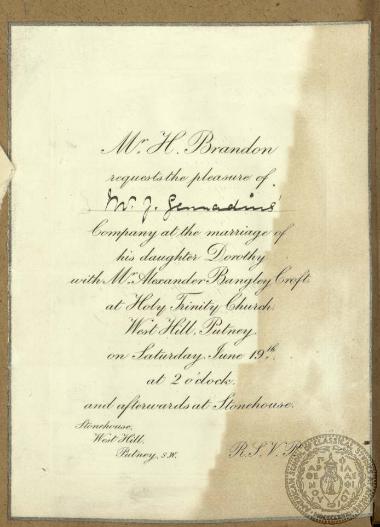 Mr. H. Brandon
requests the pleasure of
Mr. J. Gennadius'
Company at the marriage of
his daughter Dorothy
with Mr. Alexander Bangley Croft
at Holy Trinity Church
West Hill, Putney.
on Saturday, June 19th.
at 2 o'clock.
and afterwards at Stonehouse.
Stonehouse,
West Hill,
Putney, S.W.
R.S.V.P.